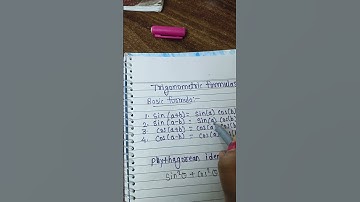 Trigonometric formulas
Basic formula:-
1. Sin (a+b) = Sin(a) cos(b)
2. Sin (a-b) = Sin(a) cos(b)
3. Cos (a+b) = Cos(a)
4. Cos (a-b) = Cos(a)
Phythagorean iden
Sin²θ + Cos²θ